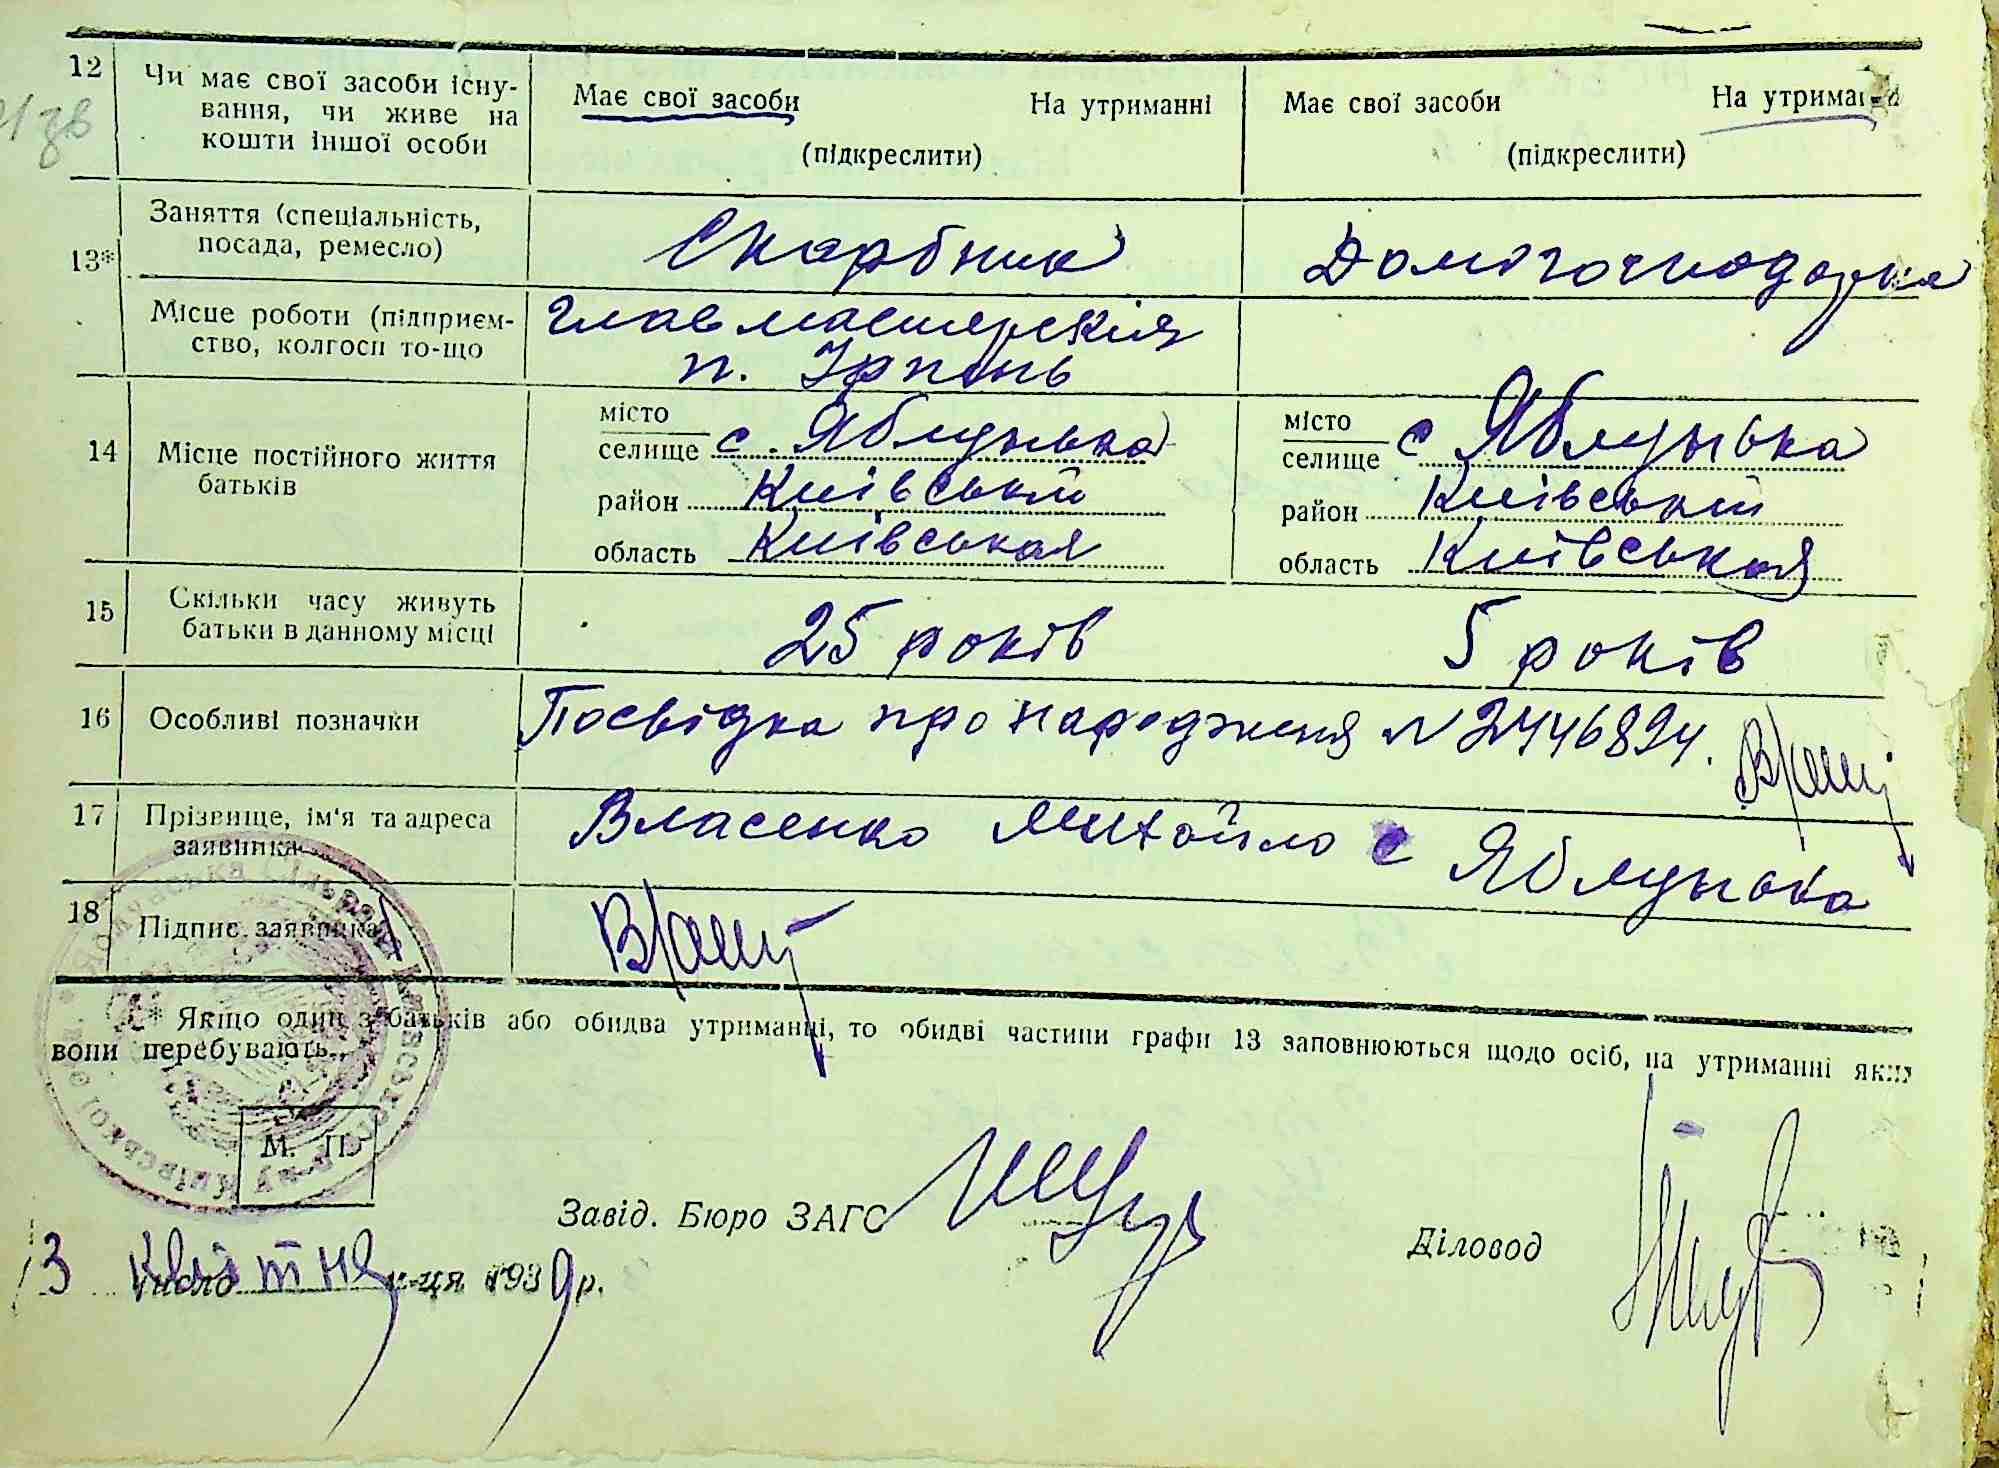 12 Чи має свої засоби існу-
вання, чи живе на
кошти іншої особи
Має свої засоби На утриманні
(підкреслити)
Має свої засоби На утриманні
(підкреслити)
13* Заняття (спеціальність,
посада, ремесло)
Скарбник
Домогосподарка
Місце роботи (підприєм-
ство, колгосп то-що
главмастерскія
п. Ірпень
14 Місце постійного життя
батьків
місто
селище с. Яблунька
район Київський
область Київськая
місто
селище с Яблунька
район Київський
область Київськая
15 Скільки часу живуть
батьки в данному місці
25 років
5 років
16 Особливі позначки
Посвідка про народження № 2446894.
17 Прізвище, ім'я та адреса
заявника
Власенко Михайло с Яблунька
18 Підпис заявника
* Якщо один з батьків або обидва утриманці, то обидві частини графи 13 заповнюються щодо осіб, на утриманні яких
вони перебувають.
М. П.
Завід. Бюро ЗАГС
Діловод
3 квітня число м-ця 1939 р.